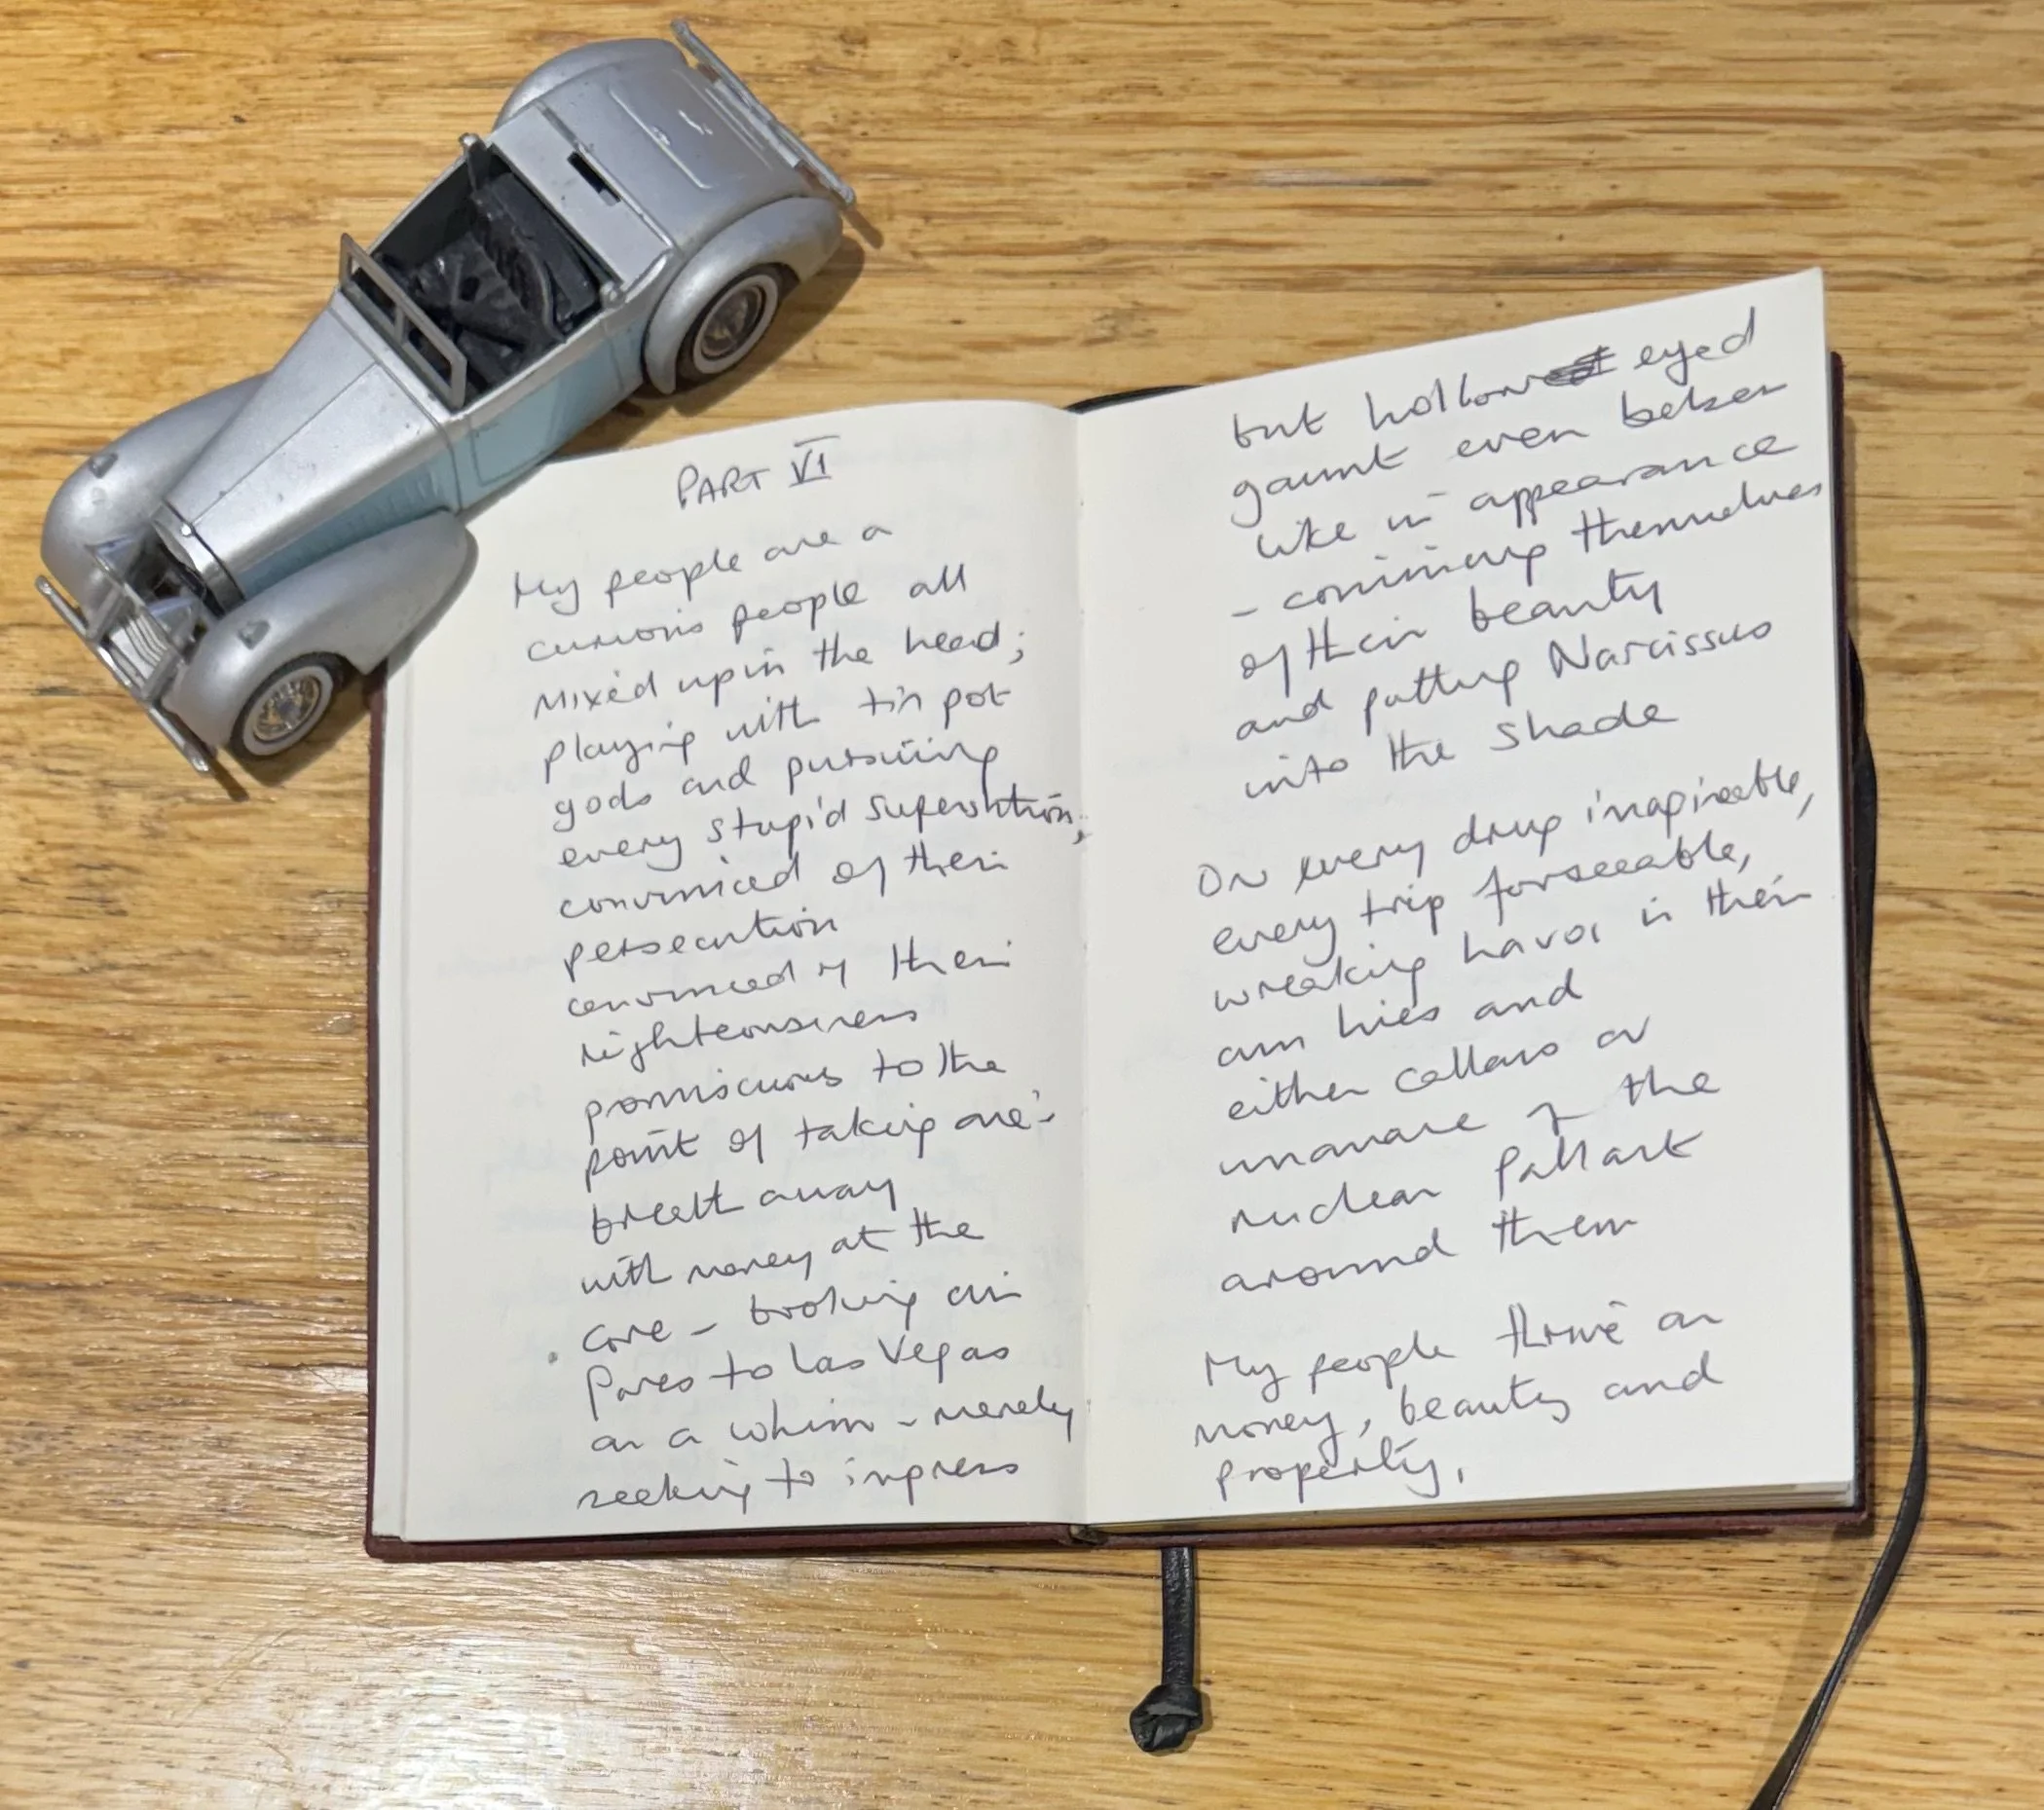 PART VI
My people are a
curious people all
mixed up in the head;
playing with tin pot
gods and pursuing
every stupid superstition;
convinced of their
persecution
convinced of their
righteousness
promiscuous to the
point of taking one's
breath away
with money at the
core - broking air
fares to Las Vegas
on a whim - merely
seeking to impress
but hollow eyed
gaunt even
like in appearance
- convincing themselves
of their beauty
and putting Narcissus
into the shade
On every drug imagineable,
every trip forseeable,
wreaking havoc in their
own lives and
either callous or
unaware of the
nuclear fallout
around them
My people thrive on
money, beauty and
property.